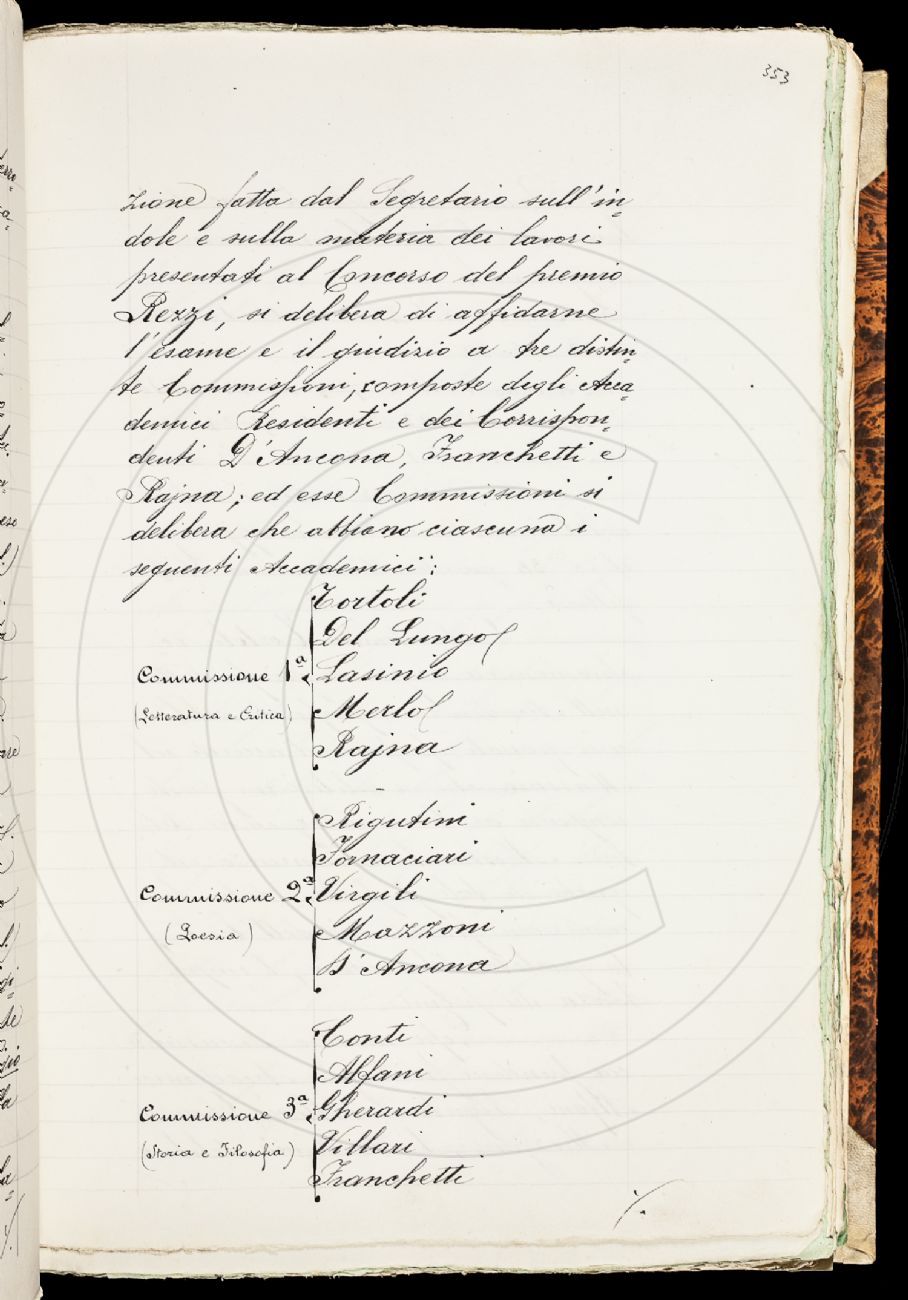 353
zione fatta dal Segretario sull'in=
dole e sulla materia dei lavori
presentati al Concorso del premio
Rezzi, si delibera di affidarne
l'esame e il giudizio a tre distin=
te Commissioni, composte degli Acca=
demici Residenti e dei Corrispon=
denti D'Ancona, Franchetti e
Rajna; ed esse Commissioni si
delibera che abbiano ciascuna i
seguenti Accademici:
Tortoli
Del Lungo
Commissione 1ª Lasinio
(Letteratura e Critica) Merlo
Rajna
Rigutini
Fornaciari
Commissione 2ª Virgili
(Poesia) Mazzoni
D'Ancona
Conti
Alfani
Commissione 3ª Gherardi
(Storia e Filosofia) Villari
Franchetti